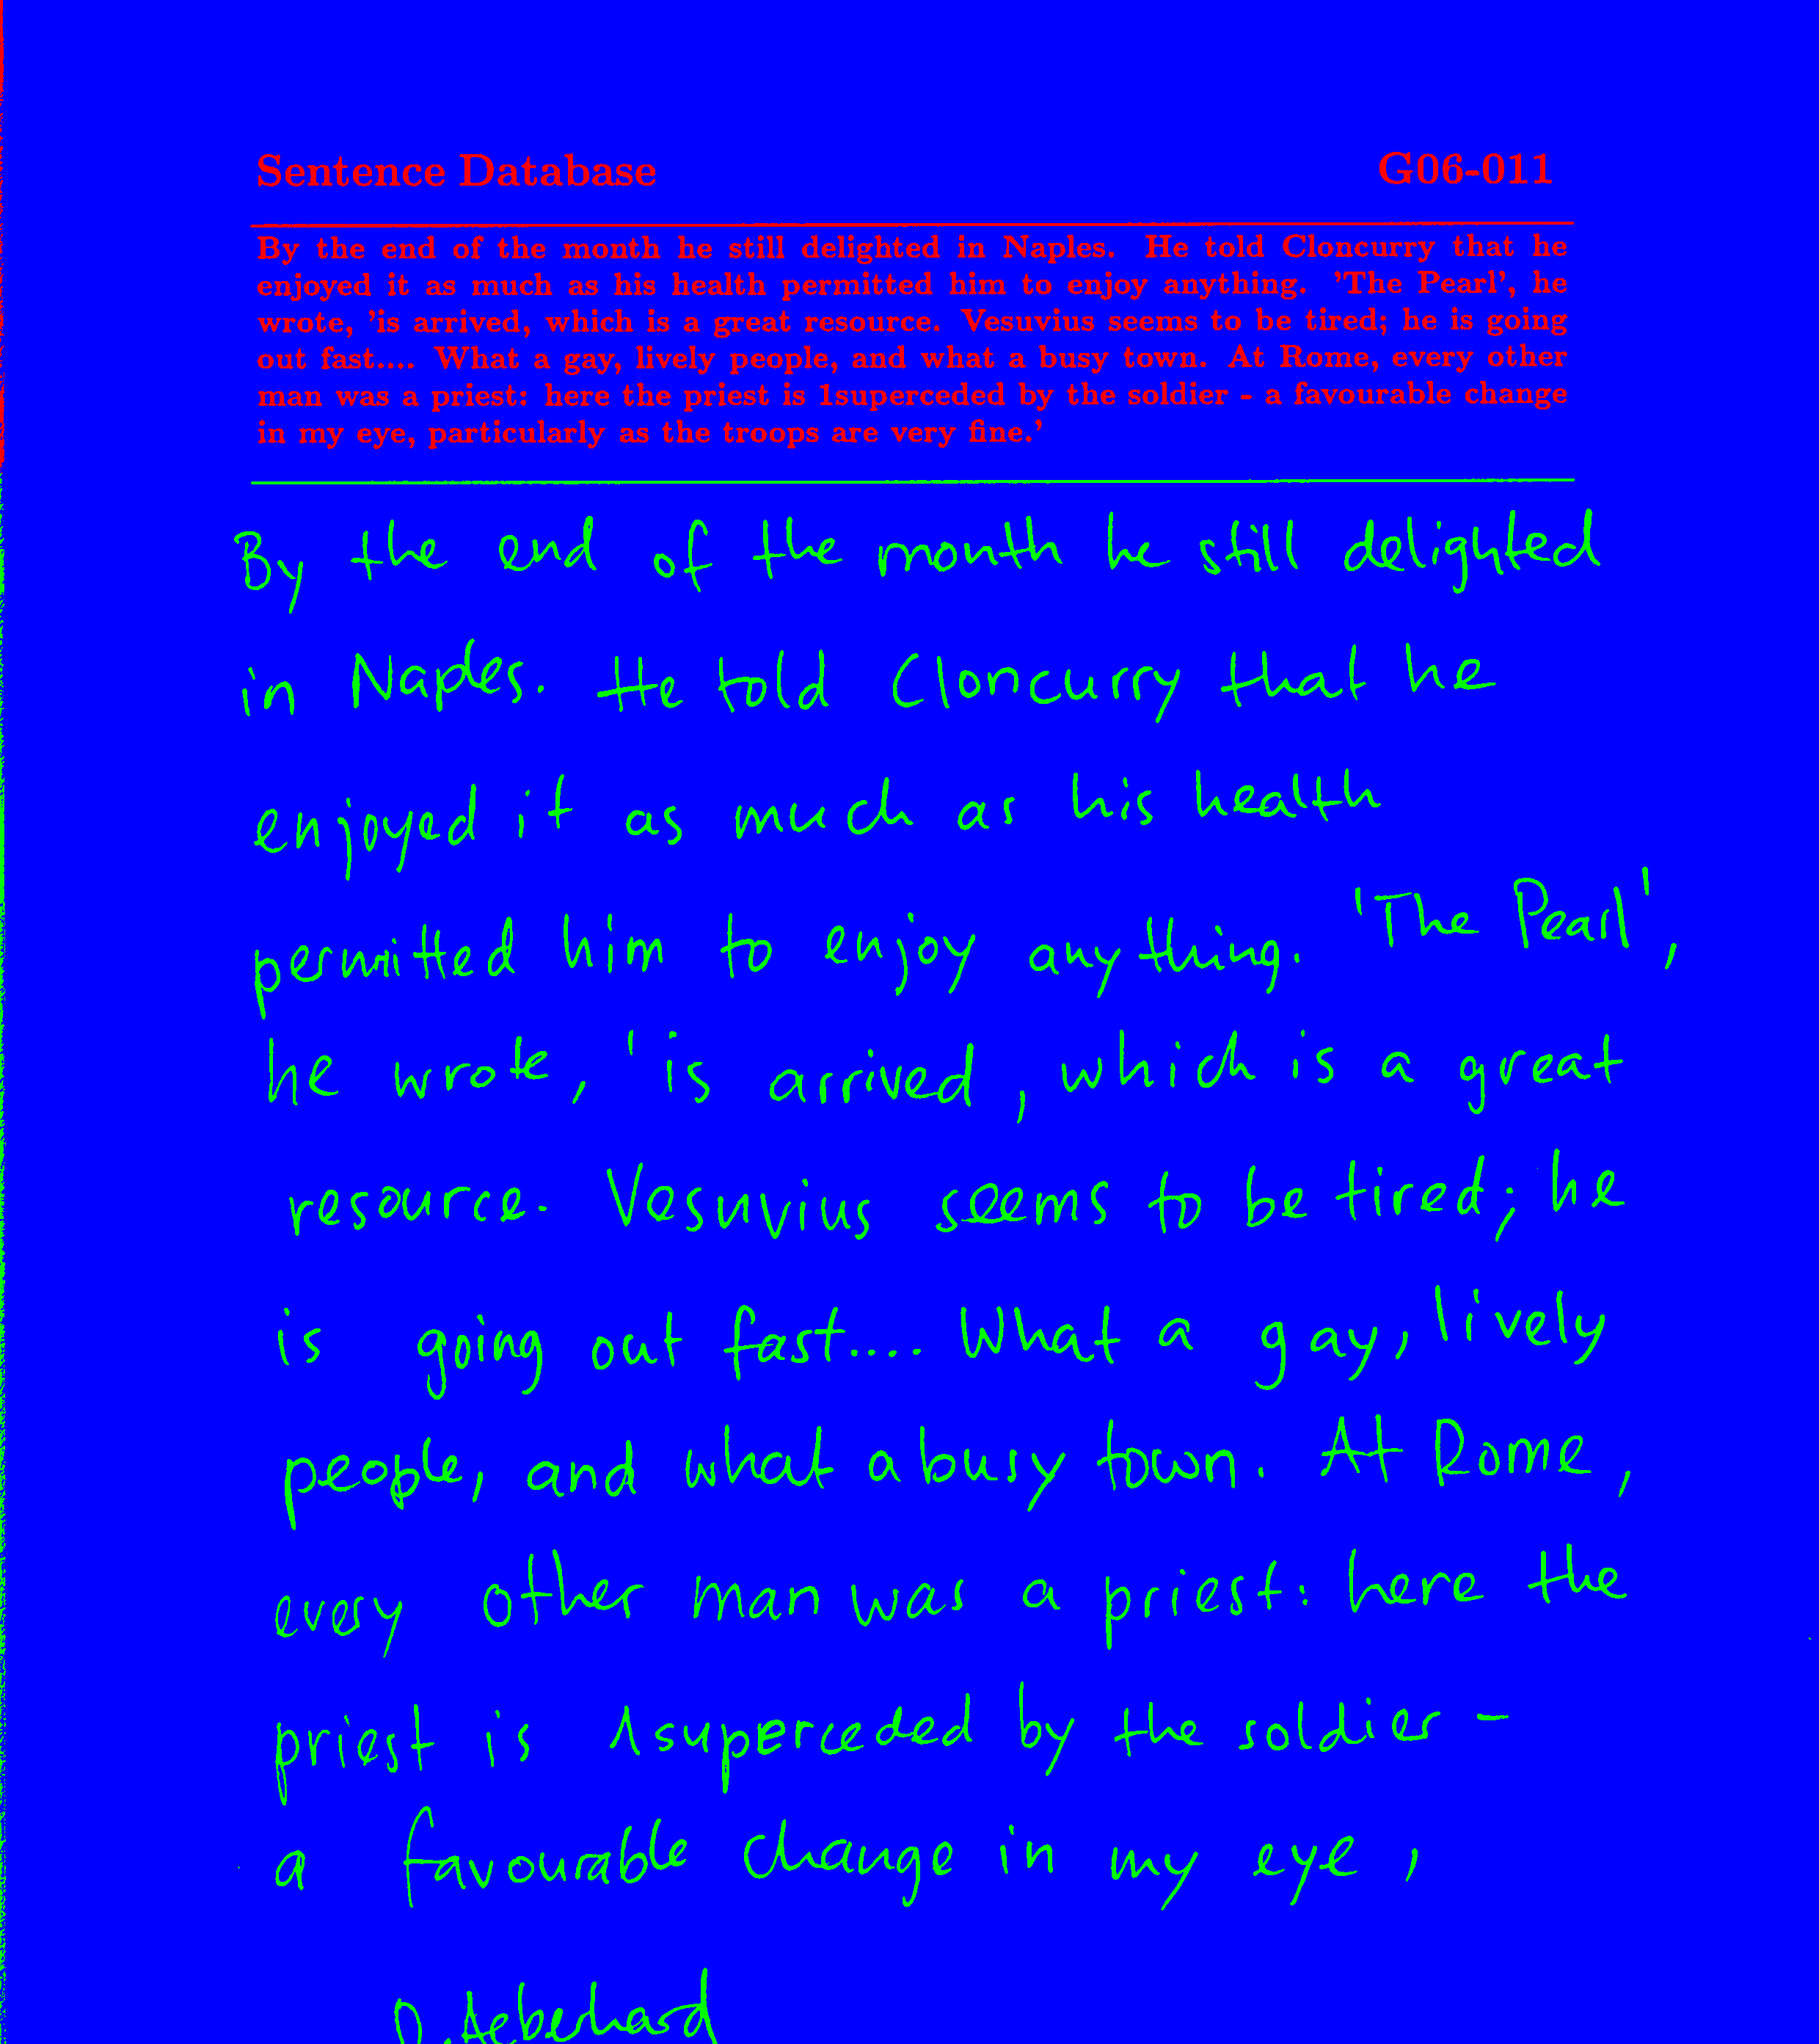 Sentence Database G06-011
By the end of the month he still delighted in Naples. He told Cloncurry that he
enjoyed it as much as his health permitted him to enjoy anything. 'The Pearl', he
wrote, 'is arrived, which is a great resource. Vesuvius seems to be tired; he is going
out fast.... What a gay, lively people, and what a busy town. At Rome, every other
man was a priest: here the priest is 1superceded by the soldier - a favourable change
in my eye, particularly as the troops are very fine.'
By the end of the month he still delighted
in Naples. He told Cloncurry that he
enjoyed it as much as his health
permitted him to enjoy anything. 'The Pearl',
he wrote, 'is arrived, which is a great
resource. Vesuvius seems to be tired; he
is going out fast.... What a gay, lively
people, and what a busy town. At Rome,
every other man was a priest: here the
priest is 1superceded by the soldier -
a favourable change in my eye,
D. Aeberhard